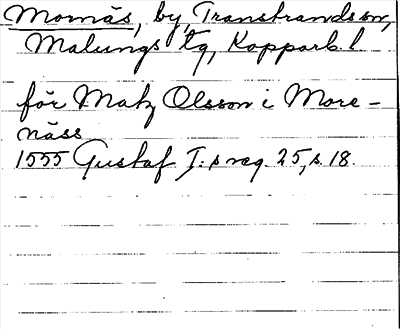 Mornäs, by, Transtrands sn,
Malungs tg, Kopparb. l
för Matz Olsson i More-
näss
1555 Gustaf I:s reg. 25, s. 18.